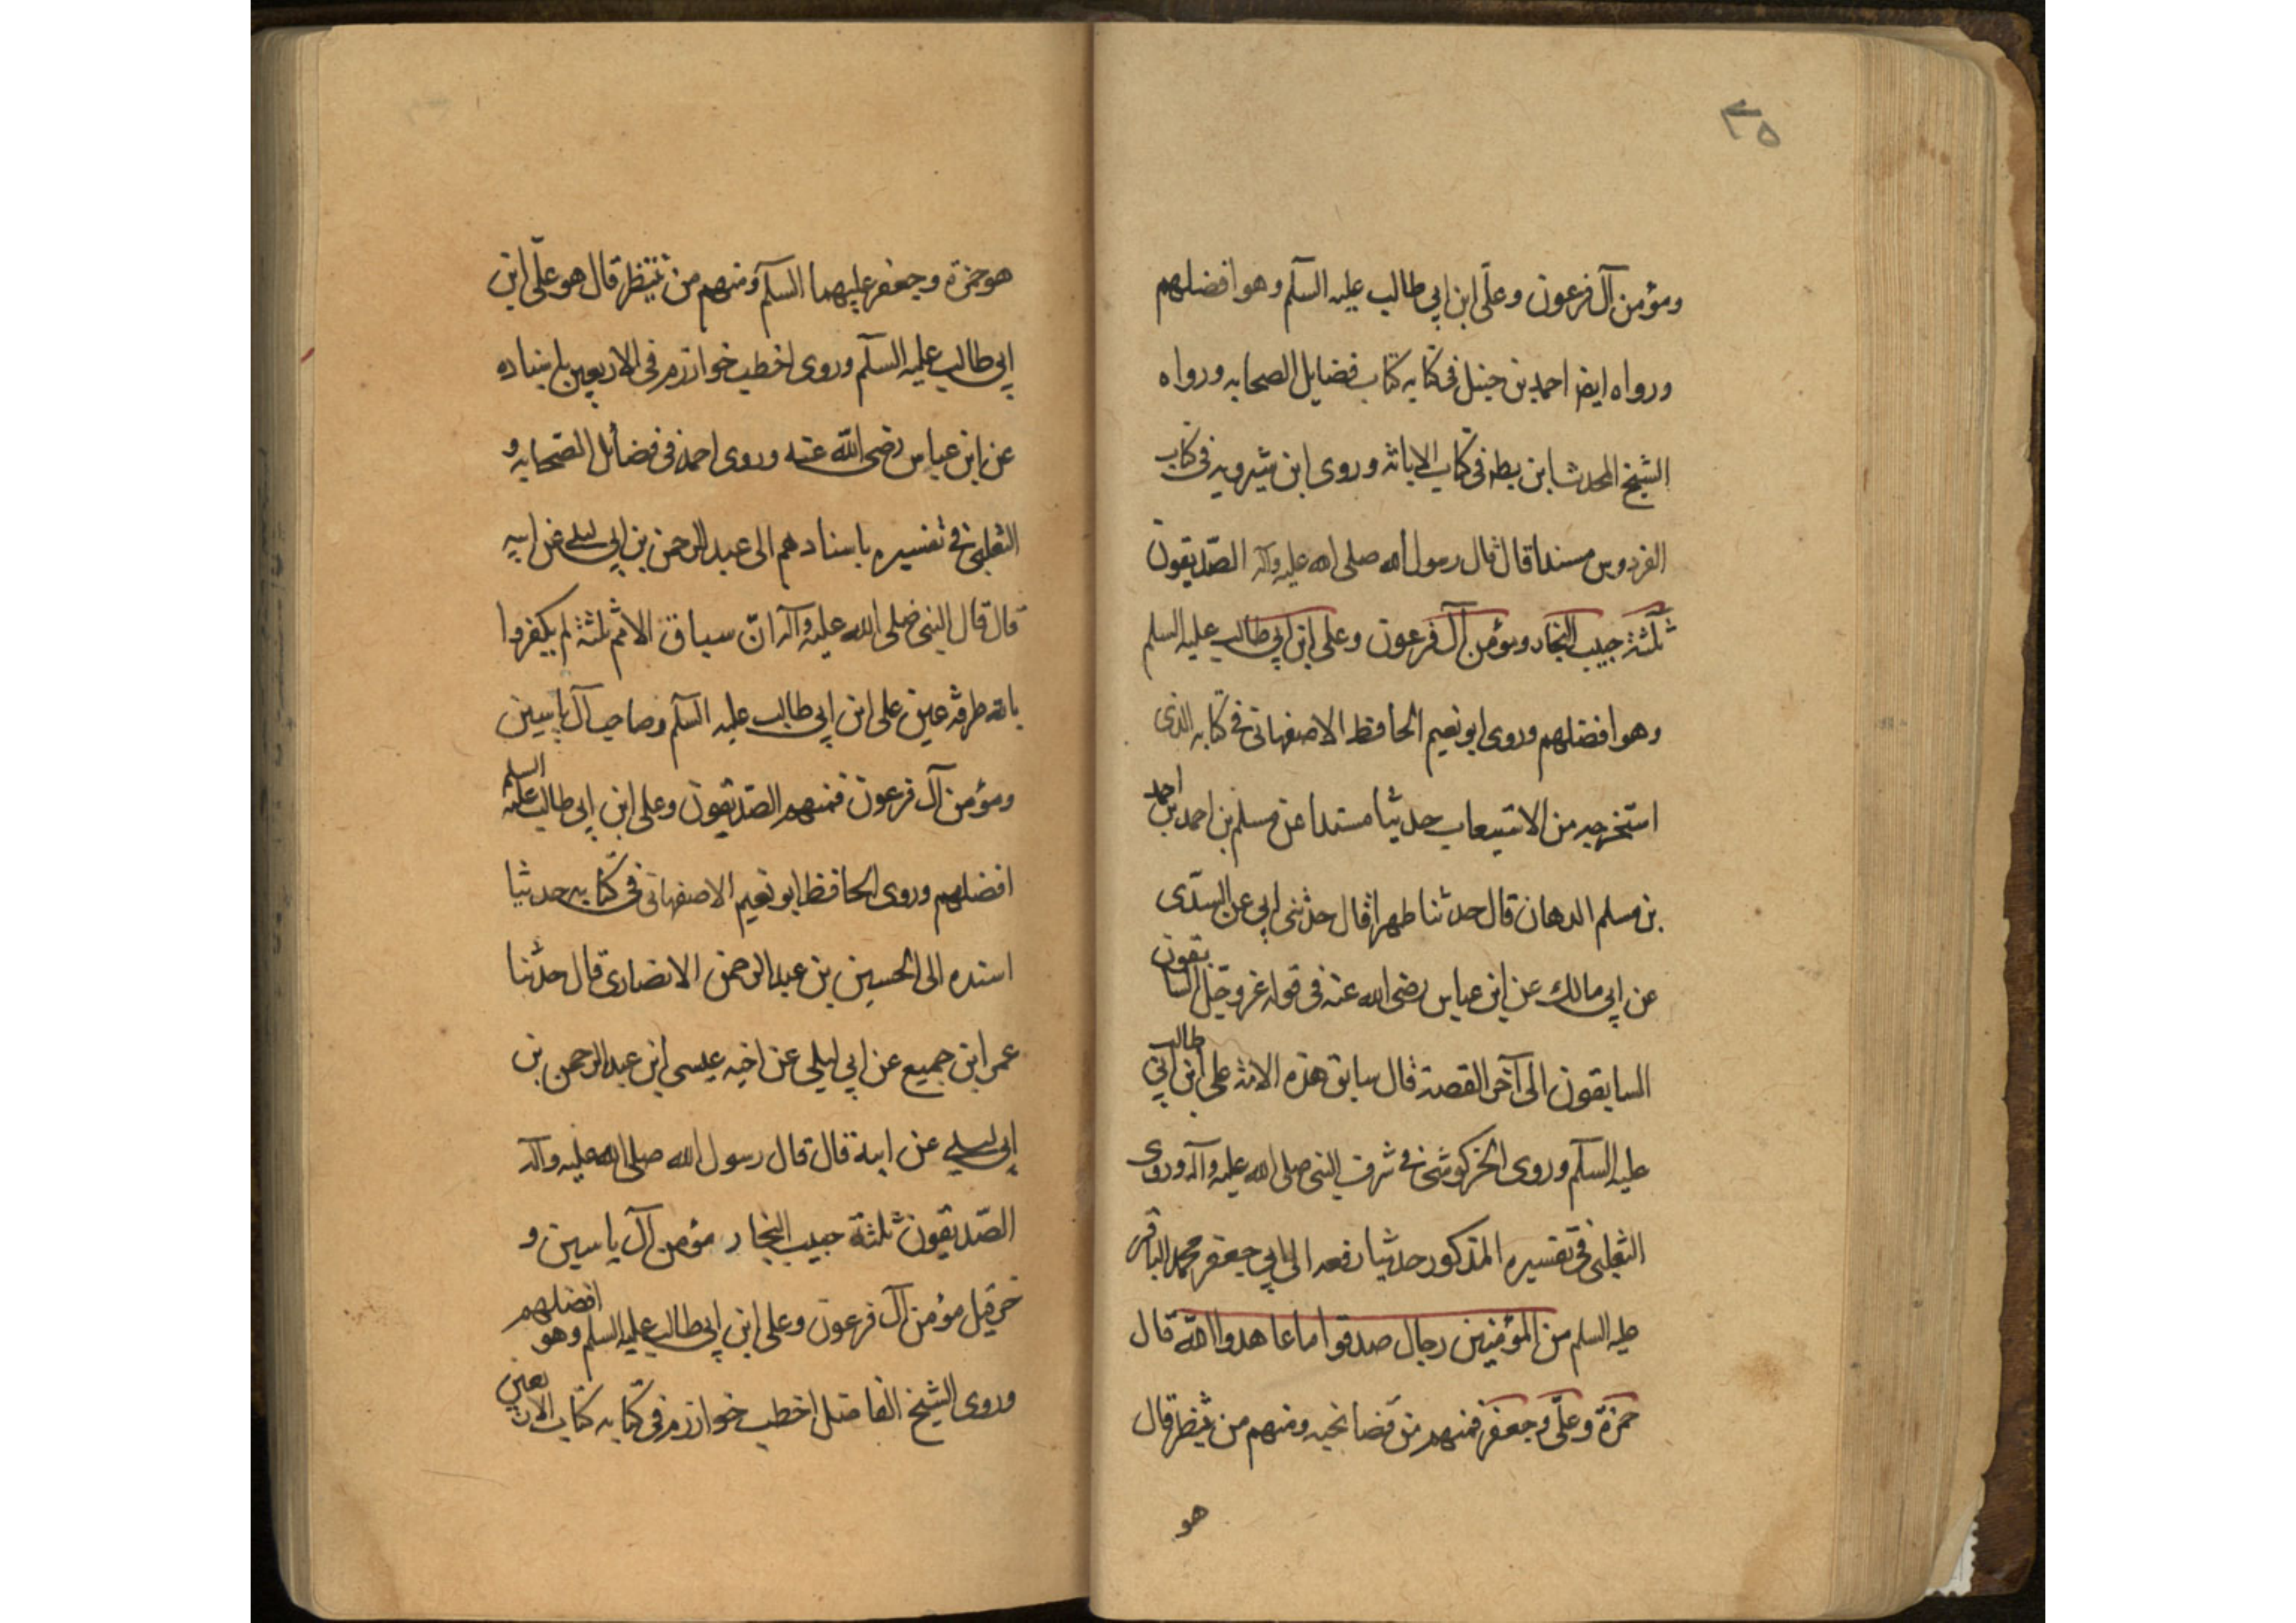 ٣٥
ومؤمن آل فرعون وعلّى ابن ابي طالب عليه السلم وهو افضلهم
ورواه ايضا احمد بن حنبل فى كتابه كتاب فضايل الصحابه ورواه
الشيخ المحدث ابن بطه فى كتاب الابانه وروى ابن شيرويه فى كتاب
الفردوس مسندا قال قال رسول الله صلى الله عليه وآله الصّديقون
ثلثة حبيب النجار ومؤمن آل فرعون وعلى ابن ابي طالب عليه السلم
وهو افضلهم وروى ابو نعيم الحافظ الاصفهانى فى كتابه الذى
استخرجه من الاستيعاب حديثا مسندا عن مسلم بن احمد بن احمد
بن مسلم الدهان قال حدثنا طهر قال حدثنى ابي عن السدّى
عن ابي مالك عن ابن عباس رضى الله عنه فى قوله عز وجل السابقون
السابقون الى آخر القصة قال سابق هذه الامة على ابن ابي طالب
عليه السلم وروى الخركوشى فى شرف النبى صلى الله عليه وآله وروى
الثعلبى فى تفسيره المذكور حديثا رفعه الى ابي جعفر محمد الباقر
عليه السلم من المؤمنين رجال صدقوا ما عاهدوا الله قال
حمزة وعلّى وجعفر فمنهم من قضا نحبه ومنهم من ينتظر قال
هو
هو حمزة وجعفر عليهما السلم ومنهم من ينتظر قال هو علّى ابن
ابي طالب عليه السلم وروى اخطب خوارزم فى الاربعين باسناده
عن ابن عباس رضى الله عنه وروى احمد فى فضائل الصحابه و
الثعلبى فى تفسيره باسنادهم الى عبد الرحمن بن ابي ليلى عن ابيه
قال قال النبى صلى الله عليه وآله انّ سباق الامم ثلثة لم يكفروا
بالله طرفة عين على ابن ابي طالب عليه السلم وصاحب آل ياسين
ومؤمن آل فرعون فمنهم الصّديقون وعلى ابن ابي طالب عليه السلم
افضلهم وروى الحافظ ابو نعيم الاصفهانى فى كتابه حديثا
اسنده الى الحسين بن عبد الرحمن الانصارى قال حدثنا
عمر ابن جميع عن ابي ليلى عن اخيه عيسى ابن عبد الرحمن بن
ابي ليلى عن ابيه قال قال رسول الله صلى الله عليه وآله
الصّديقون ثلثة حبيب النجار مؤمن آل ياسين و
خرقيل مؤمن آل فرعون وعلى ابن ابي طالب عليه السلم وهو افضلهم
وروى الشيخ الفاضل اخطب خوارزم فى كتابه كتاب الاربعين